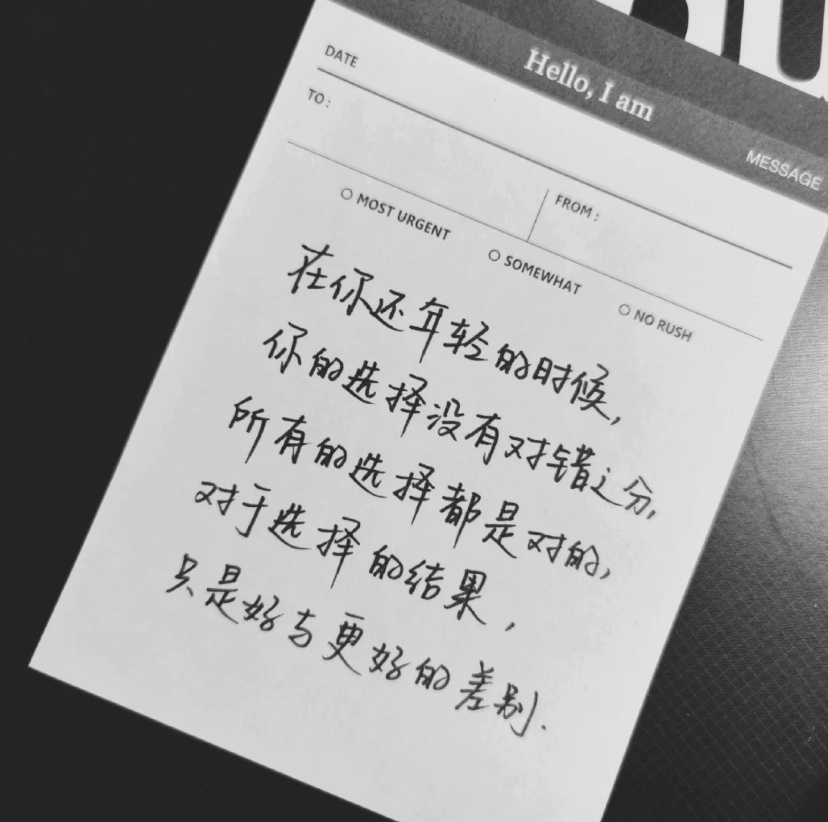 Hello, I am
MESSAGE
DATE
TO:
FROM:
MOST URGENT
SOMEWHAT
NO RUSH
在你还年轻的时候,
你的选择没有对错之分,
所有的选择都是对的,
对于选择的结果,
只是好与更好的差别.